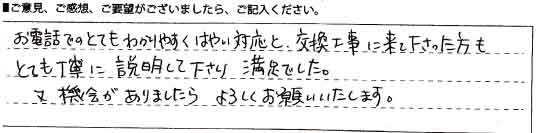 ■ご意見、ご感想、ご要望がございましたら、ご記入ください。
お電話でのとてもわかりやすくはやい対応と、交換工事に来て下さった方も
とても丁寧に説明して下さり満足でした。
又機会がありましたらよろしくお願いいたします。